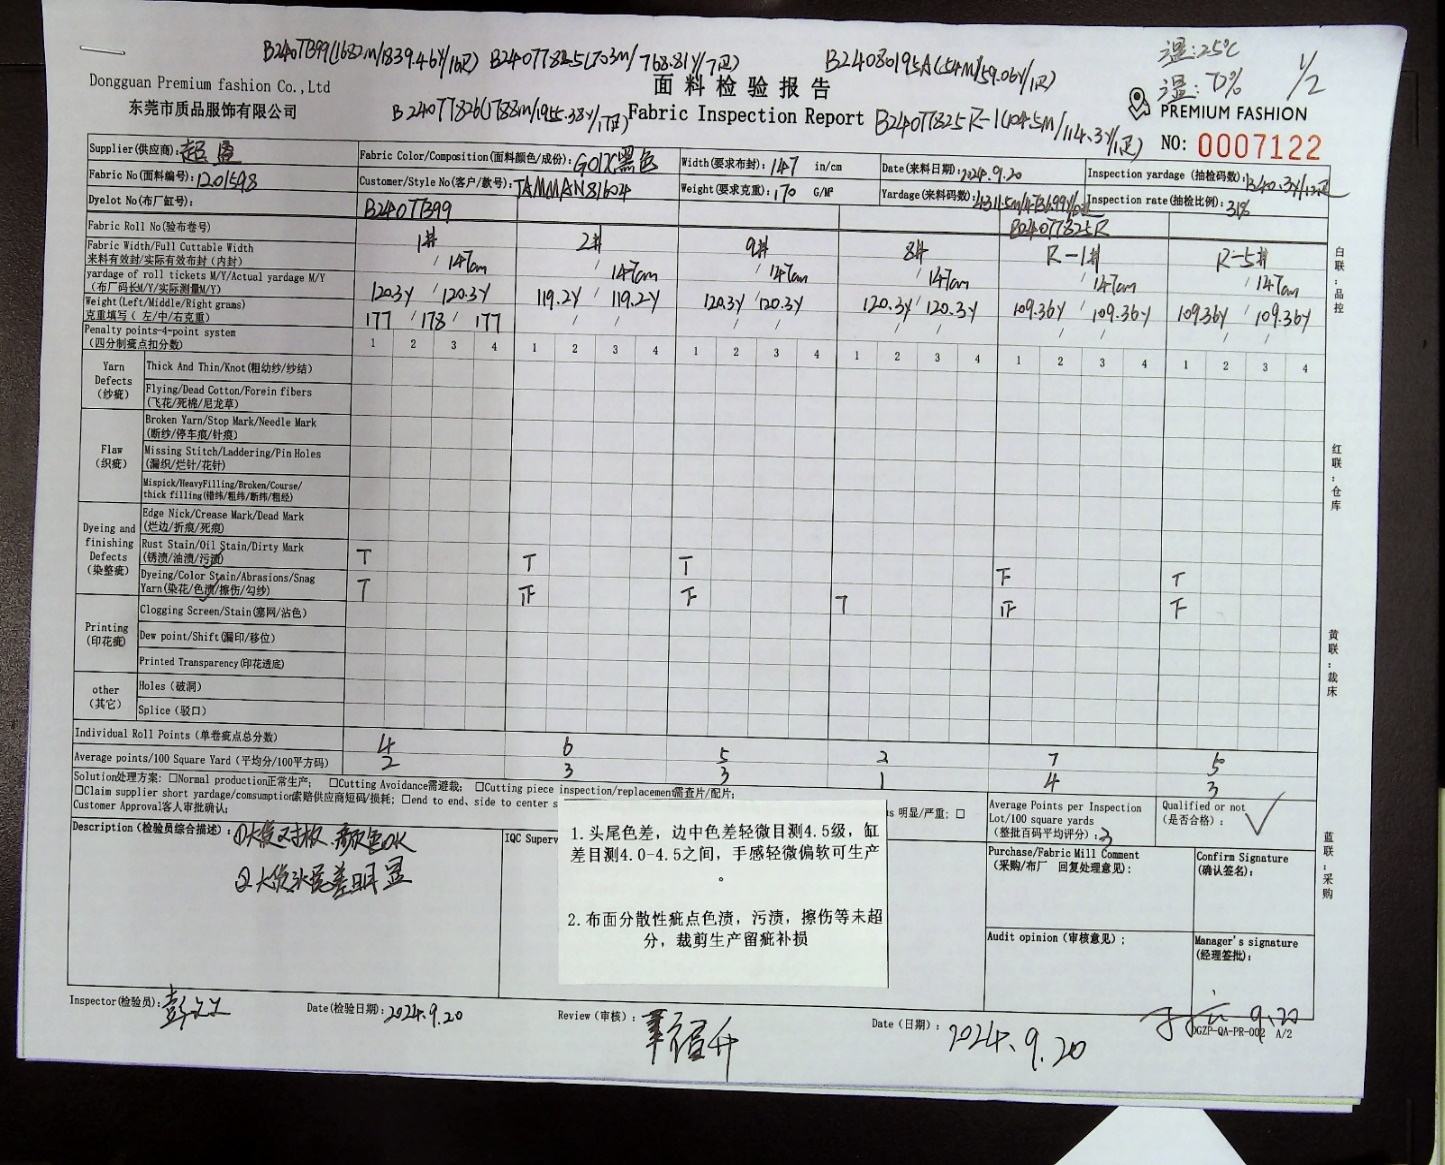 B240TTB99(1682M/1839.46Y/16疋) B240TT825(703M/768.81Y/7疋) B24080195A(54M/59.06Y/1疋) 温:25℃
湿:70% 1/2
Dongguan Premium fashion Co.,Ltd
东莞市质品服饰有限公司
面料检验报告
B240TT826(1788M/1955.38Y/17疋) Fabric Inspection Report B240TT825R-1(104.5M/114.3Y/1疋)
PREMIUM FASHION
NO: 0007122
Supplier(供应商): 超盈 Fabric Color/Composition(面料颜色/成份): G01X黑色 Width(要求布封): 147 in/cm Date(来料日期): 2024.9.20 Inspection yardage (抽检码数):
Fabric No(面料编号): 1201598 Customer/Style No(客户/款号): TAMMAN81604 Weight(要求克重): 170 G/M² Yardage(来料码数): Inspection rate(抽检比例): 31%
Dyelot No(布厂缸号): B240TTB99 B240TT825R
Fabric Roll No(验布卷号) 1# 2# 9# 8# R-1# R-5#
Fabric Width/Full Cuttable Width
来料有效封/实际有效布封（内封） / 147cm / 147cm / 147cm / 147cm / 147cm / 147cm
yardage of roll tickets M/Y/Actual yardage M/Y
（布厂码长M/Y/实际测量M/Y） 120.3Y / 120.3Y 119.2Y / 119.2Y 120.3Y / 120.3Y 120.3Y / 120.3Y 109.36Y / 109.36Y 109.36Y / 109.36Y
Weight(Left/Middle/Right grams)
克重填写（ 左/中/右克重） 177 / 178 / 177 / / / / / / / / / /
Penalty points-4-point system
（四分制疵点扣分数） 1 2 3 4 1 2 3 4 1 2 3 4 1 2 3 4 1 2 3 4 1 2 3 4
Yarn Defects (纱疵)
Thick And Thin/Knot(粗幼纱/纱结)
Flying/Dead Cotton/Forein fibers
(飞花/死棉/尼龙草)
Flaw (织疵)
Broken Yarn/Stop Mark/Needle Mark
(断纱/停车痕/针痕)
Missing Stitch/Laddering/Pin Holes
(漏织/烂针/花针)
Mispick/HeavyFilling/Broken/Course/
thick filling(错纬/粗纬/断纬/粗经)
Dyeing and finishing Defects (染整疵)
Edge Nick/Crease Mark/Dead Mark
(烂边/折痕/死痕)
Rust Stain/Oil Stain/Dirty Mark
(锈渍/油渍/污渍)
Dyeing/Color Stain/Abrasions/Snag
Yarn(染花/色渍/擦伤/勾纱)
Printing (印花疵)
Clogging Screen/Stain(塞网/沾色)
Dew point/Shift(漏印/移位)
Printed Transparency(印花透底)
other (其它)
Holes (破洞)
Splice (驳口)
Individual Roll Points (单卷疵点总分数) 4 6 5 2 7 5
Average points/100 Square Yard (平均分/100平方码) 2 3 3 1 4 3
Solution处理方案: □Normal production正常生产; □Cutting Avoidance需避裁; □Cutting piece inspection/replacement需查片/配片;
□Claim supplier short yardage/comsumption索赔供应商短码/损耗; □end to end, side to center s
明显/严重; □
Customer Approval客人审批确认:
Average Points per Inspection
Lot/100 square yards
(整批百码平均评分): 3
Qualified or not
(是否合格): ✓
Description (检验员综合描述):
①大货对板.颜色OK
②大货头尾差明显
IQC Superv
1. 头尾色差，边中色差轻微目测4.5级，缸
差目测4.0-4.5之间，手感轻微偏软可生产
。
2. 布面分散性疵点色渍，污渍，擦伤等未超
分，裁剪生产留疵补损
Purchase/Fabric Mill Comment
(采购/布厂 回复处理意见):
Confirm Signature
(确认签名):
Audit opinion (审核意见) ;
Manager's signature
(经理签批):
Inspector(检验员): Date(检验日期): 2024.9.20 Review (审核): Date (日期): 2024.9.20 9.22
DGZP-QA-PR-002 A/2
白联:品控
红联:仓库
黄联:裁床
蓝联:采购